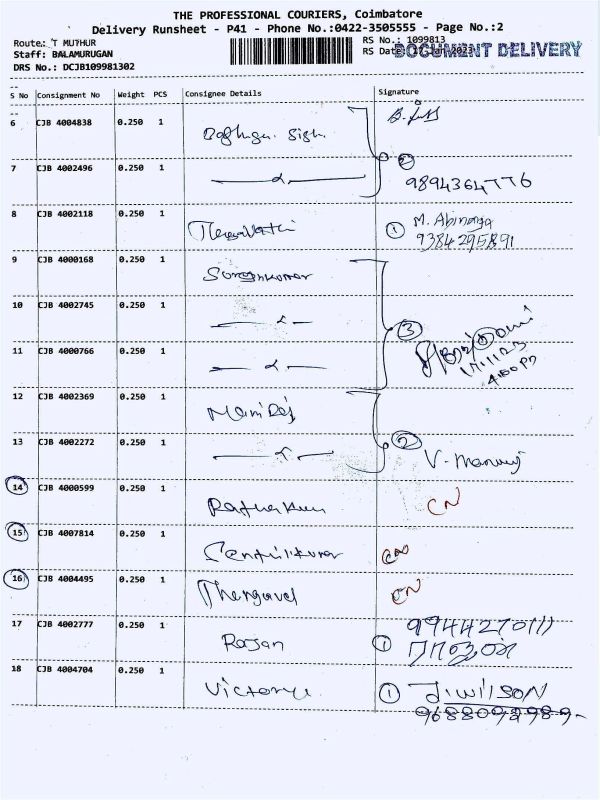 THE PROFESSIONAL COURIERS, Coimbatore
Delivery Runsheet - P41 - Phone No.:0422-3505555 - Page No.:2
Route: T MUTHUR
RS No.: 1099813
Staff: BALAMURUGAN
RS Date: 17-Jan-2023
DOCUMENT DELIVERY
DRS No.: DCJB109981302
S No Consignment No Weight PCS Consignee Details Signature
6 CJB 4004838 0.250 1
7 CJB 4002496 0.250 1 2
9894364776
8 CJB 4002118 0.250 1 1 M. Abinaya
9384295891
9 CJB 4000168 0.250 1 Sureshkumar
10 CJB 4002745 0.250 1 3
11 CJB 4000766 0.250 1
17/1/23
4:00 PM
12 CJB 4002369 0.250 1 Maniraj
13 CJB 4002272 0.250 1 2
V. Manuraj
14 CJB 4000599 0.250 1 CN
15 CJB 4007814 0.250 1 Senthilkumar CN
16 CJB 4004495 0.250 1 Thangavel CN
17 CJB 4002777 0.250 1 Rajan 1
18 CJB 4004704 0.250 1 1 J. WILSON